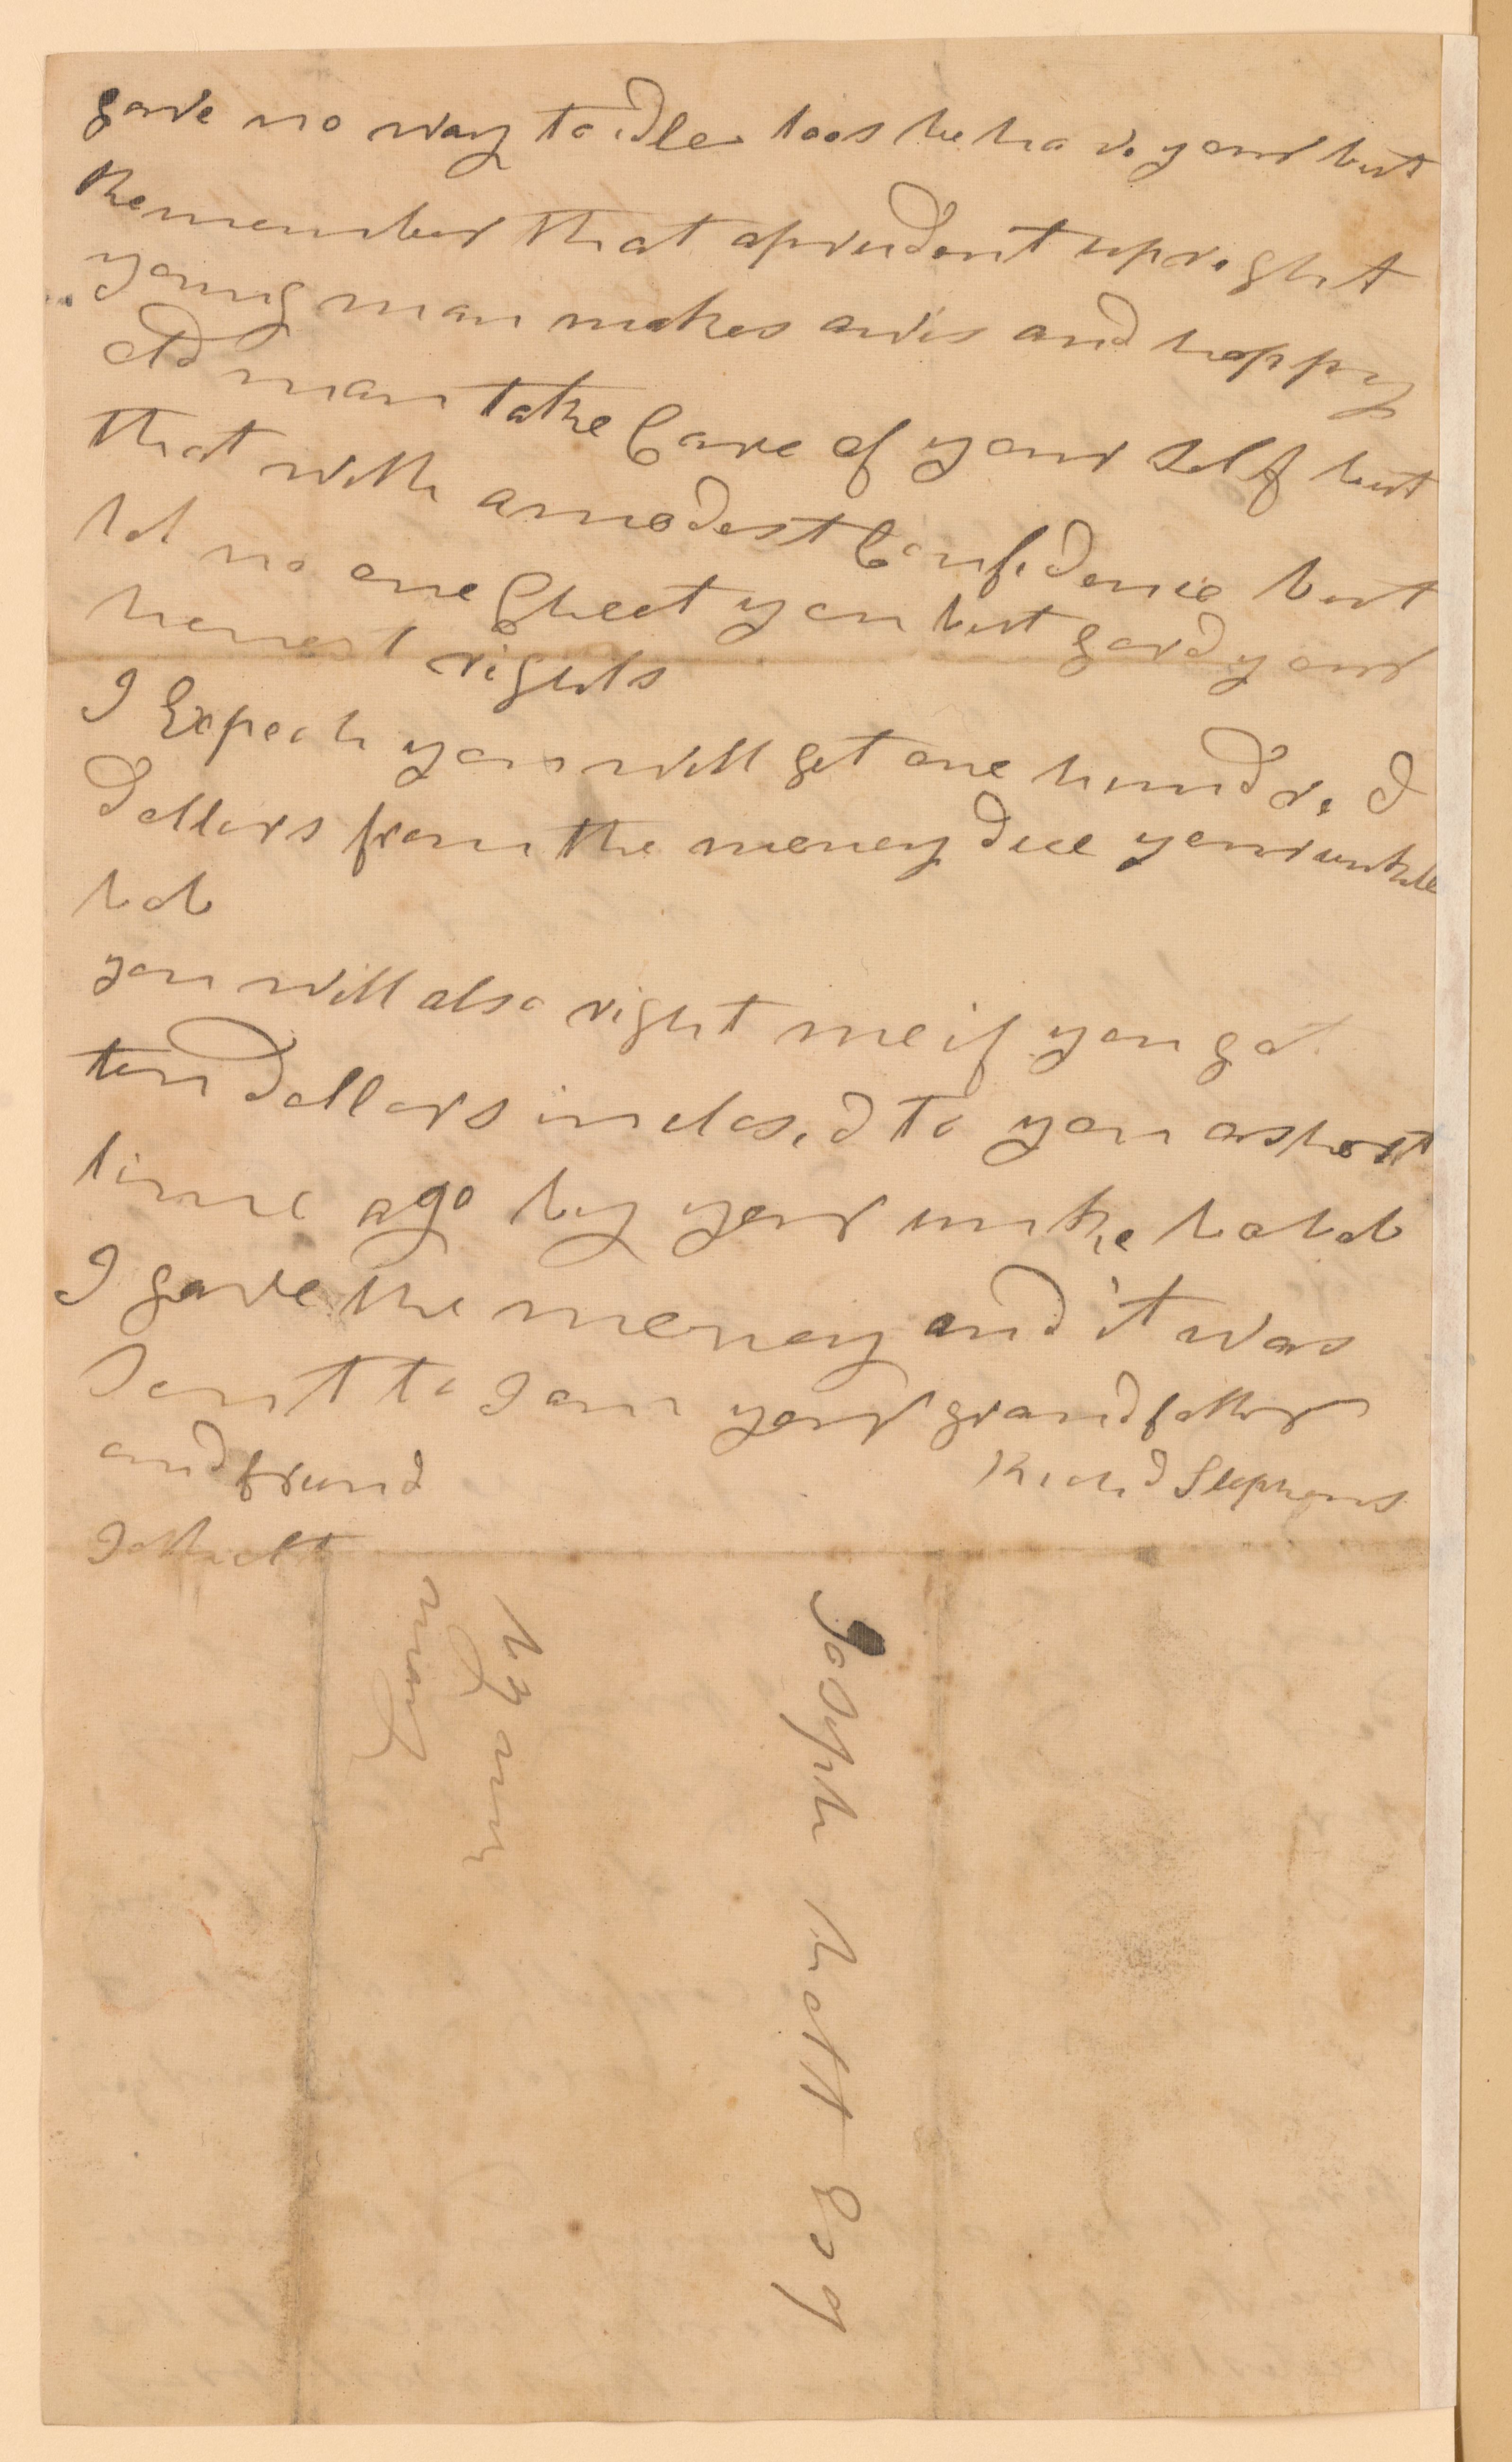 gave no way to idle loos behaveyour but
Remember that aprudent upright
young man makes awis and happy
old man take Care of your Self but
that with amodest Confidence but
let no one Cheet you but gardyour
honest rights
I Expect you will get one hundred
Dollers from the money due your unkle
bob
you will also right me if you got
ten Dollars inclosed to you ashort
time ago by your unkle bob
I gave the money and it was
Sent to I am your grandfather
and frend
Richd Stephens
J Holt
by any
way
Joseph Holt Esq